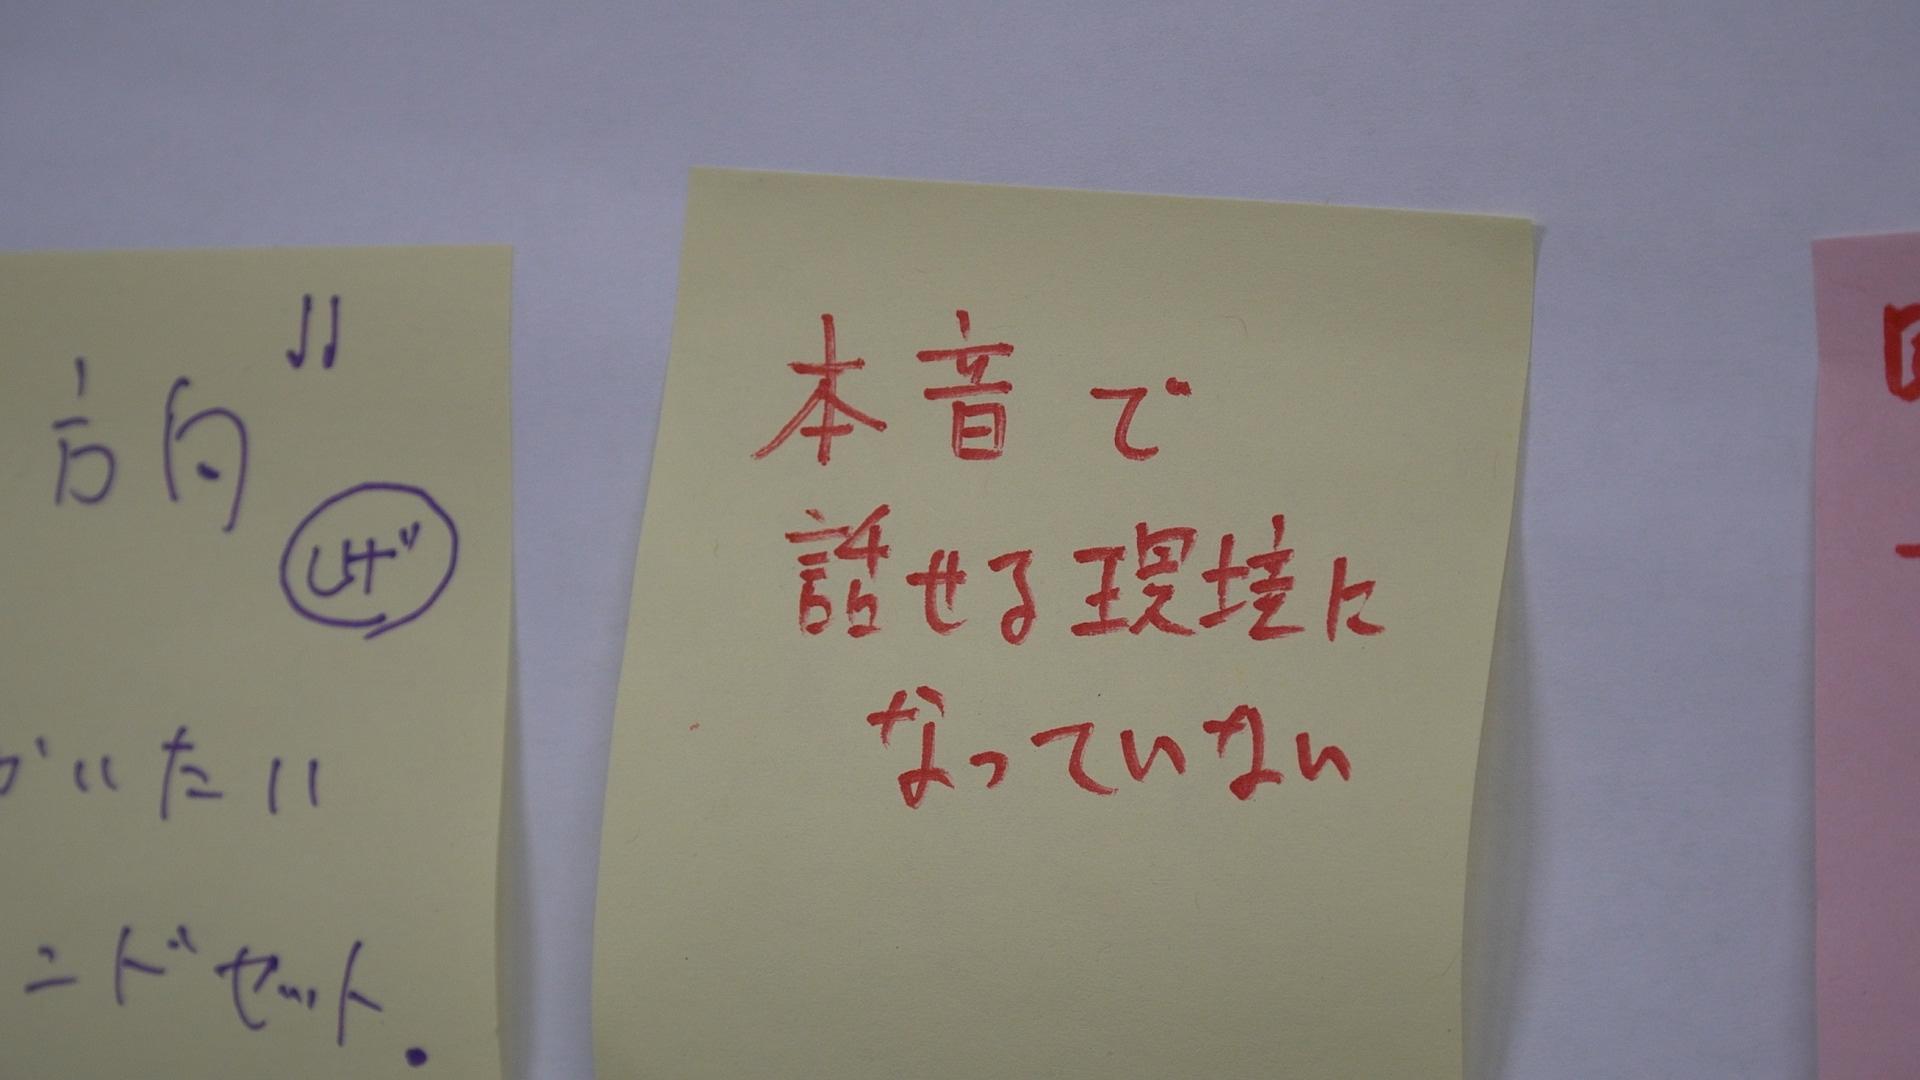 方向
がいたい
ンドセット.
本音で
話せる環境に
なっていない